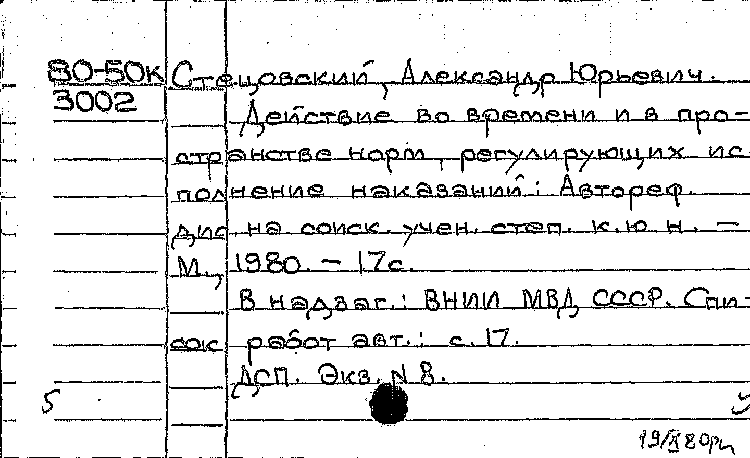 80-50к Стецовский, Александр Юрьевич.
3002
Действие во времени и в про-
странстве норм, регулирующих ис-
полнение наказаний: Автореф.
дис. на соиск. учен. степ. к.ю.н. –
М., 1980. – 17с.
В надзаг.: ВНИИ МВД СССР. Спи-
сок работ авт.: с. 17.
ДСП. Экз. N 8.
5